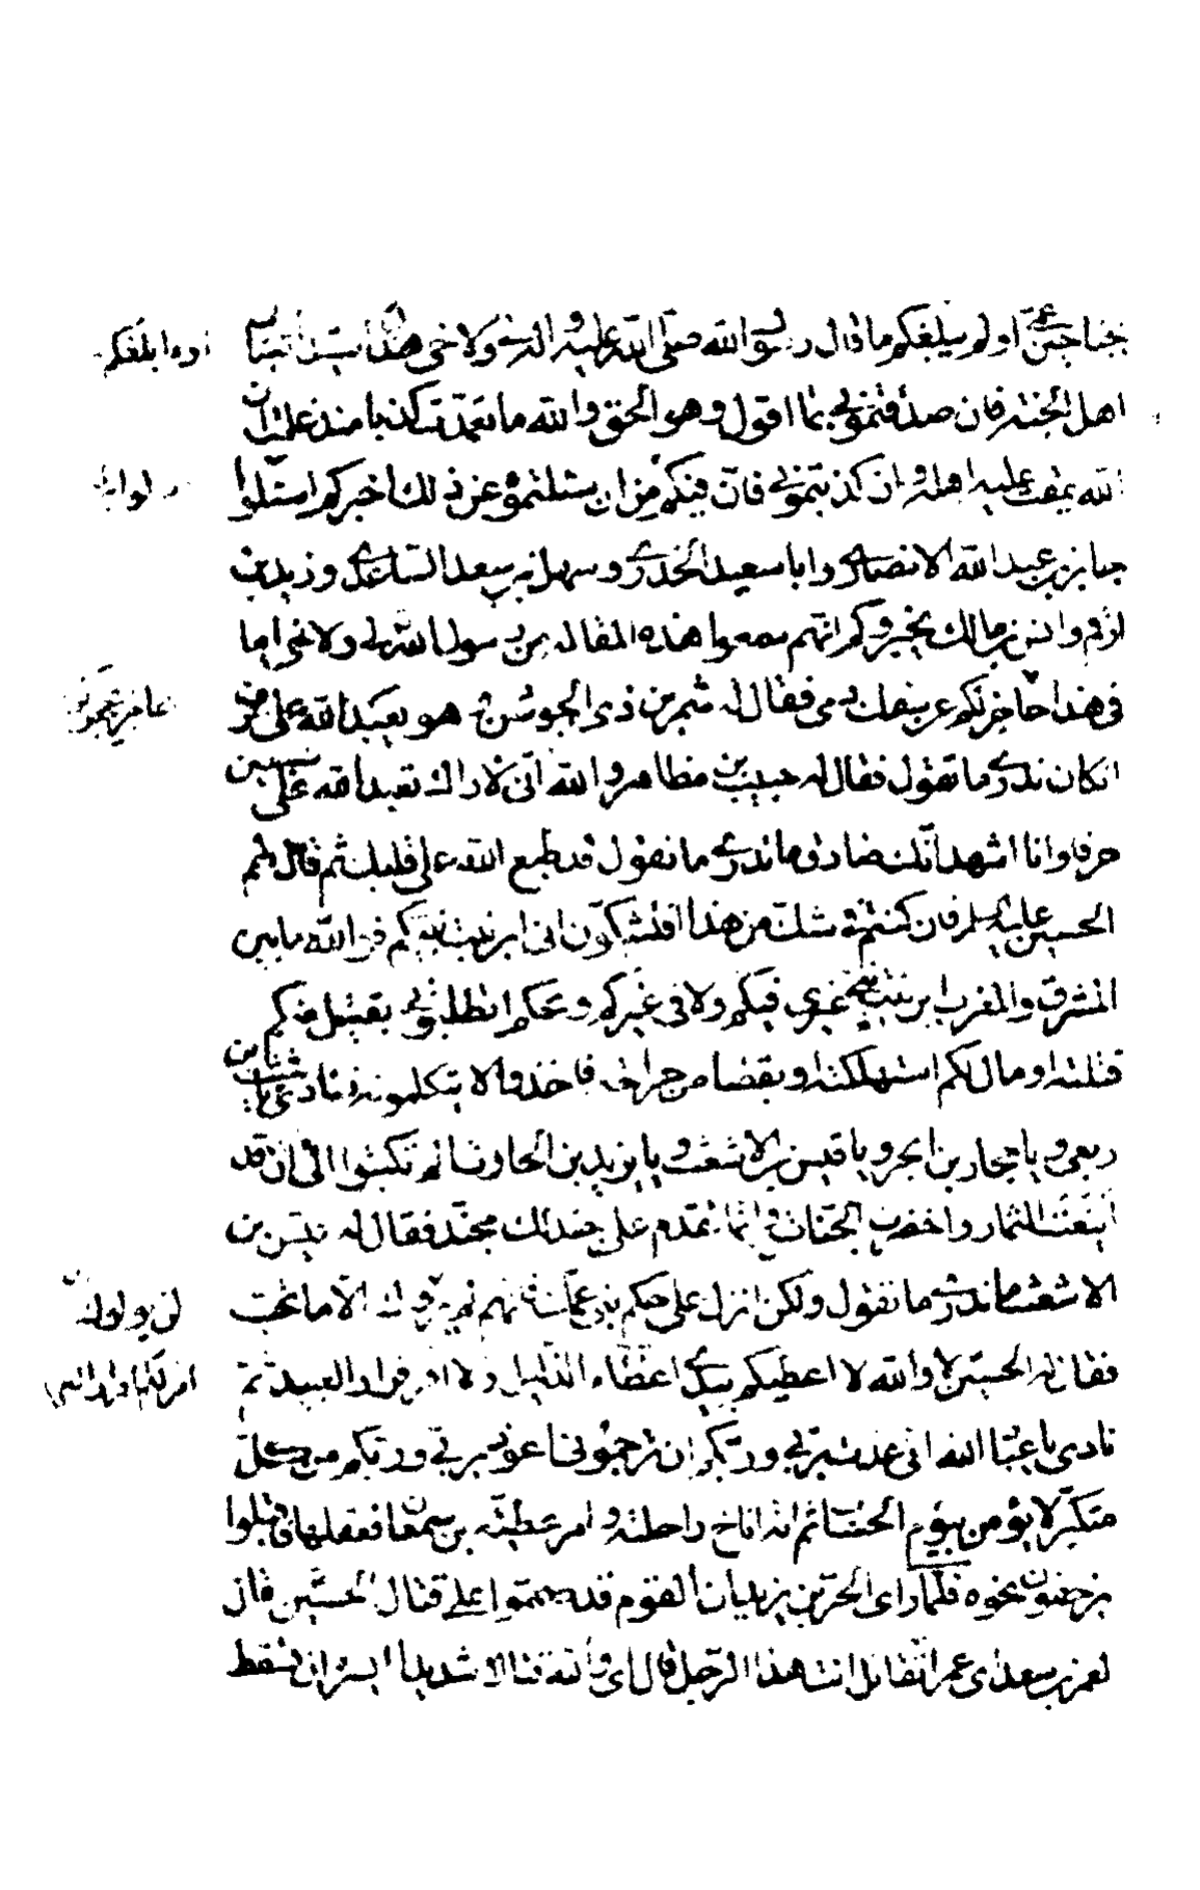 بجناحين عمي اولم يبلغكم ما قال رسول الله صلى الله عليه واله لي ولاخي هذان سيدا شباب
اهل الجنة فان صدقتموني بما اقول وهو الحق والله ما تعمدت كذبا منذ علمت ان
الله يمقت عليه اهله وان كذبتموني فان فيكم من ان سئلتموه عن ذلك اخبركم اسئلوا
جابر بن عبد الله الانصاري وابا سعيد الخدري وسهل بن سعد الساعدي وزيد بن
ارقم وانس بن مالك يخبروكم انهم سمعوا هذه المقالة من رسول الله لي ولاخي اما
في هذا حاجز لكم عن سفك دمي فقال له شمر بن ذي الجوشن هو يعبد الله على حرف
ان كان ندري ما تقول فقال له حبيب بن مظاهر والله اني لاراك تعبد الله على سبعين
حرفا وانا اشهد انك صادق ما ندري ما تقول قد طبع الله على قلبك ثم قال لهم
الحسين عليه السلم فان كنتم في شك من هذا افتشكون اني ابن بنت نبيكم فو الله ما بين
المشرق والمغرب ابن بنت نبي غيري فيكم ولا في غيركم ويحكم اتطلبوني بقتيل منكم
قتلته او مال لكم استهلكته او بقصاص جراحة فاخذوا لا يتكلمونه فنادى يا شبث بن
ربعي ويا حجار بن ابجر ويا قيس بن الاشعث ويا يزيد بن الحارث الم تكتبوا الي ان قد
اينعت الثمار واخضر الجنان وانما تقدم على جند لك مجند فقال له قيس بن
الاشعث ما ندري ما تقول ولكن انزل على حكم بني عمك فانهم لم يروك الا ما تحب
فقال له الحسين لا والله لا اعطيكم بيدي اعطاء الذليل ولا افر فرار العبيد ثم
نادى يا عباد الله اني عذت بربي وربكم ان ترجموني اعوذ بربي وربكم من كل
متكبر لا يؤمن بيوم الحساب ثم انه اناخ راحلته وامر عقبة بن سمعان فعقلها فاقبلوا
يزحفون نحوه فلما راى الحر بن يزيد ان القوم قد صمموا على قتال الحسين قال
لعمر بن سعد اي عمر اتقاتل انت هذا الرجل قال اي والله قتالا شديدا ايسره ان تسقط